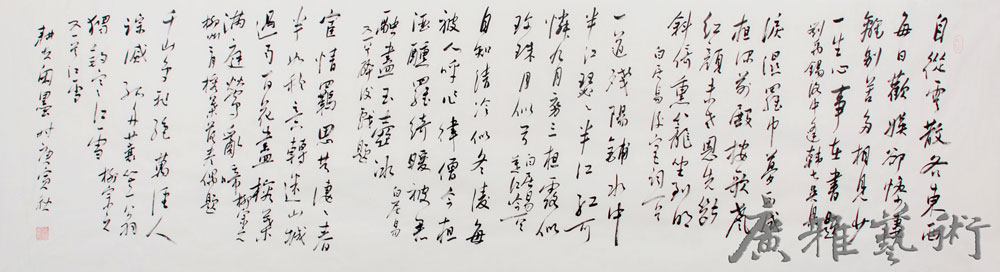 自從雲散各東西
每日歡娛卻慘悽
離別苦多相見少
一生心事在書題
劉禹錫洛中逢韓七
淚濕羅巾夢不成
夜深前殿按歌聲
紅顏未老恩先斷
斜倚熏籠坐到明
白居易後宮詞
一道殘陽鋪水中
半江瑟瑟半江紅可
憐九月初三夜露似
珍珠月似弓 白居易暮江吟
自知清冷似冬凌每
被人呼作律僧今夜
酒醺羅綺暖被君
融盡玉壺冰 白居易
醉後戲題
宦情羈思共悽悽春
半如秋意轉迷山城
過雨百花盡榕葉
滿庭鶯亂啼 柳宗元
柳州二月榕葉落盡偶題
千山鳥飛絕萬徑人
踪滅孤舟蓑笠翁
獨釣寒江雪 柳宗元
江雪
墨時庚寅秋
廣雅藝術